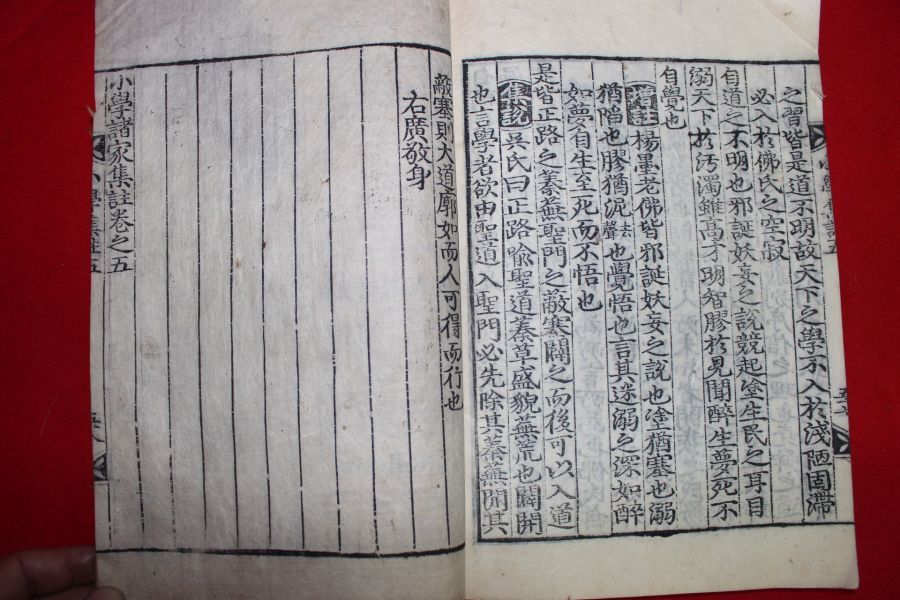 之習皆是道不明故天下之學不入於淺陋固滯
必入於佛氏之空寂
自道之不明也邪誕妖妄之說競起塗生民之耳目
溺天下於汚濁雖高才明智膠於見聞醉生夢死不
自覺也
增註楊墨老佛皆邪誕妖妄之說也塗猶塞也溺
猶陷也膠猶泥去聲也覺悟也言其迷溺之深如醉
如夢自生至死而不悟也
是皆正路之蓁蕪聖門之蔽塞闢之而後可以入道
集說吳氏曰正路喻聖道蓁草盛貌蕪荒也闢開
也言學者欲由聖道入聖門必先除其蓁蕪開其
蔽塞則大道廓如而人可得而行也
右廣敬身
小學諸家集註卷之五
小學集註五